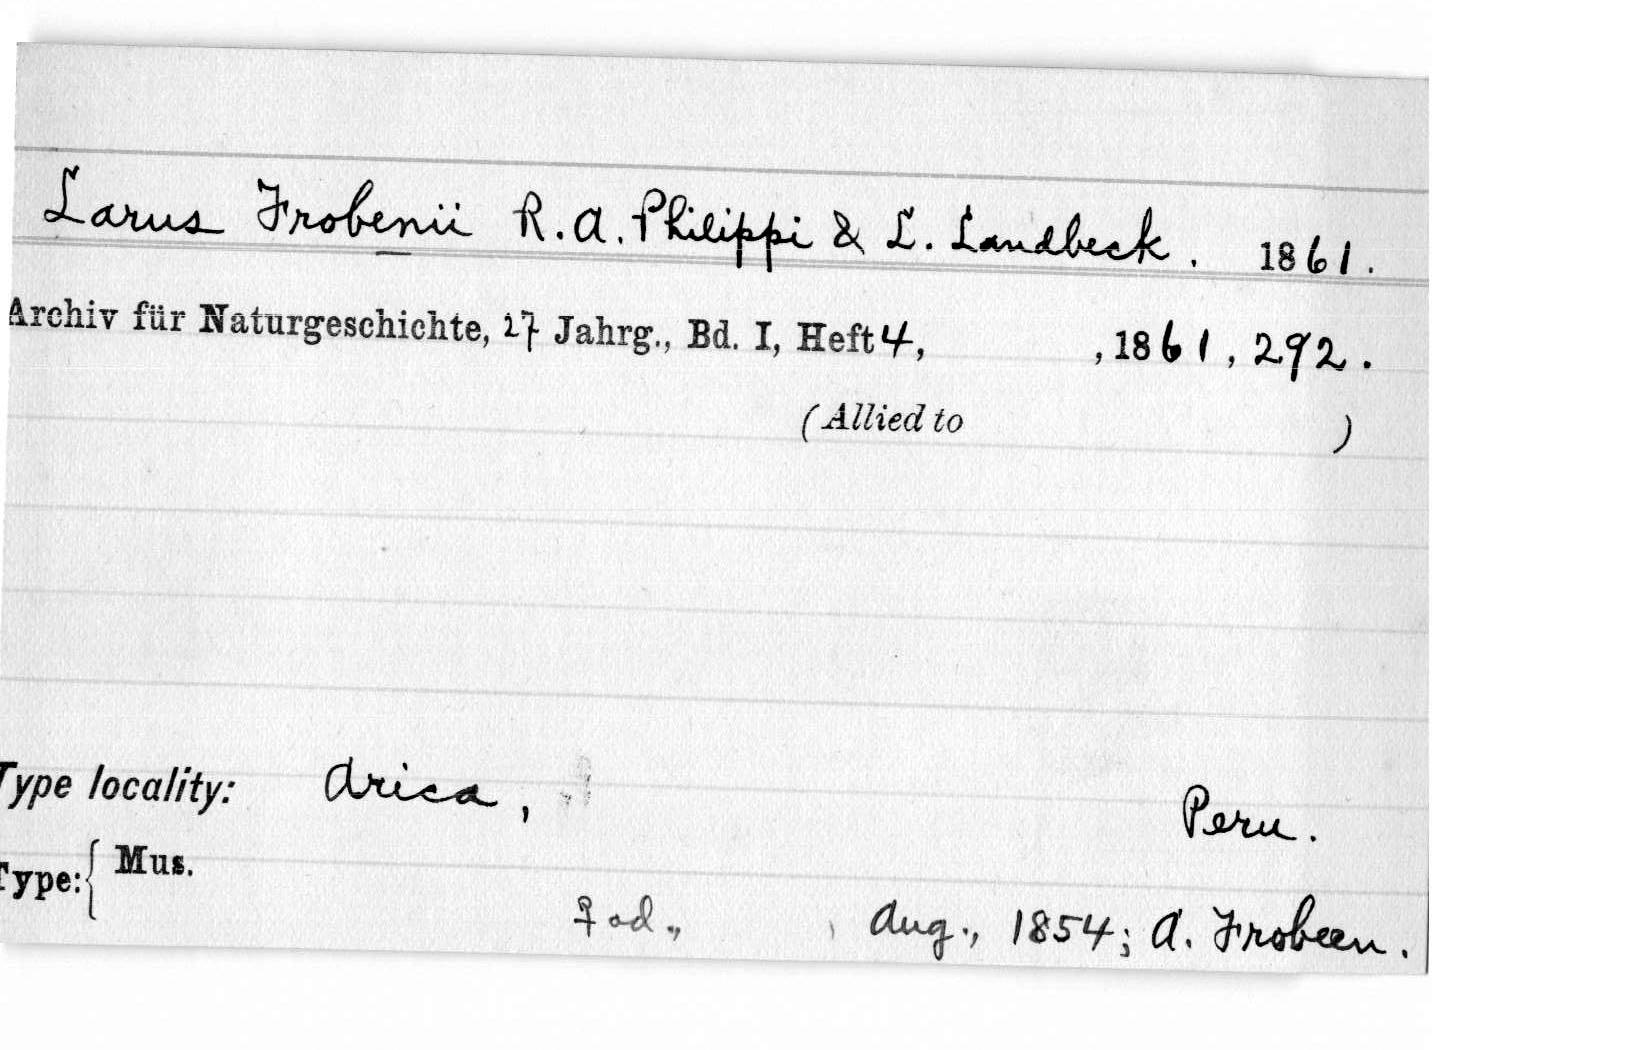 Larus Frobenii R. A. Philippi & L. Landbeck. 1861.
Archiv für Naturgeschichte, 27 Jahrg., Bd. I, Heft 4, , 1861, 292.
(Allied to )
Type locality: Arica, Peru.
Type: { Mus.
♀ ad., , Aug., 1854; A. Frobeen.